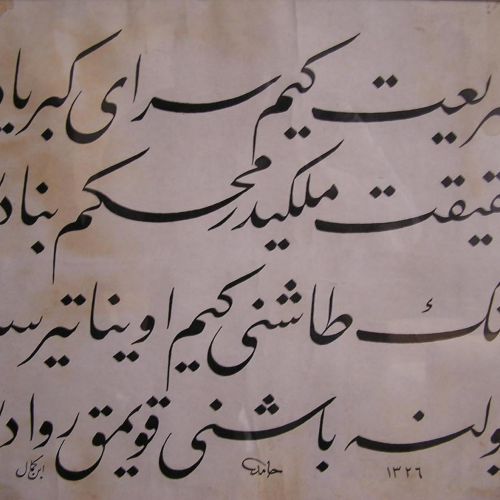 ریعت کیم سرای کبریاد
قیقت ملکیدر محکم بناد
نك طاشنی کیم اویناتیرس
ولنه باشنی قویمق رواد
١٣٢٦ حامد ابن کمال